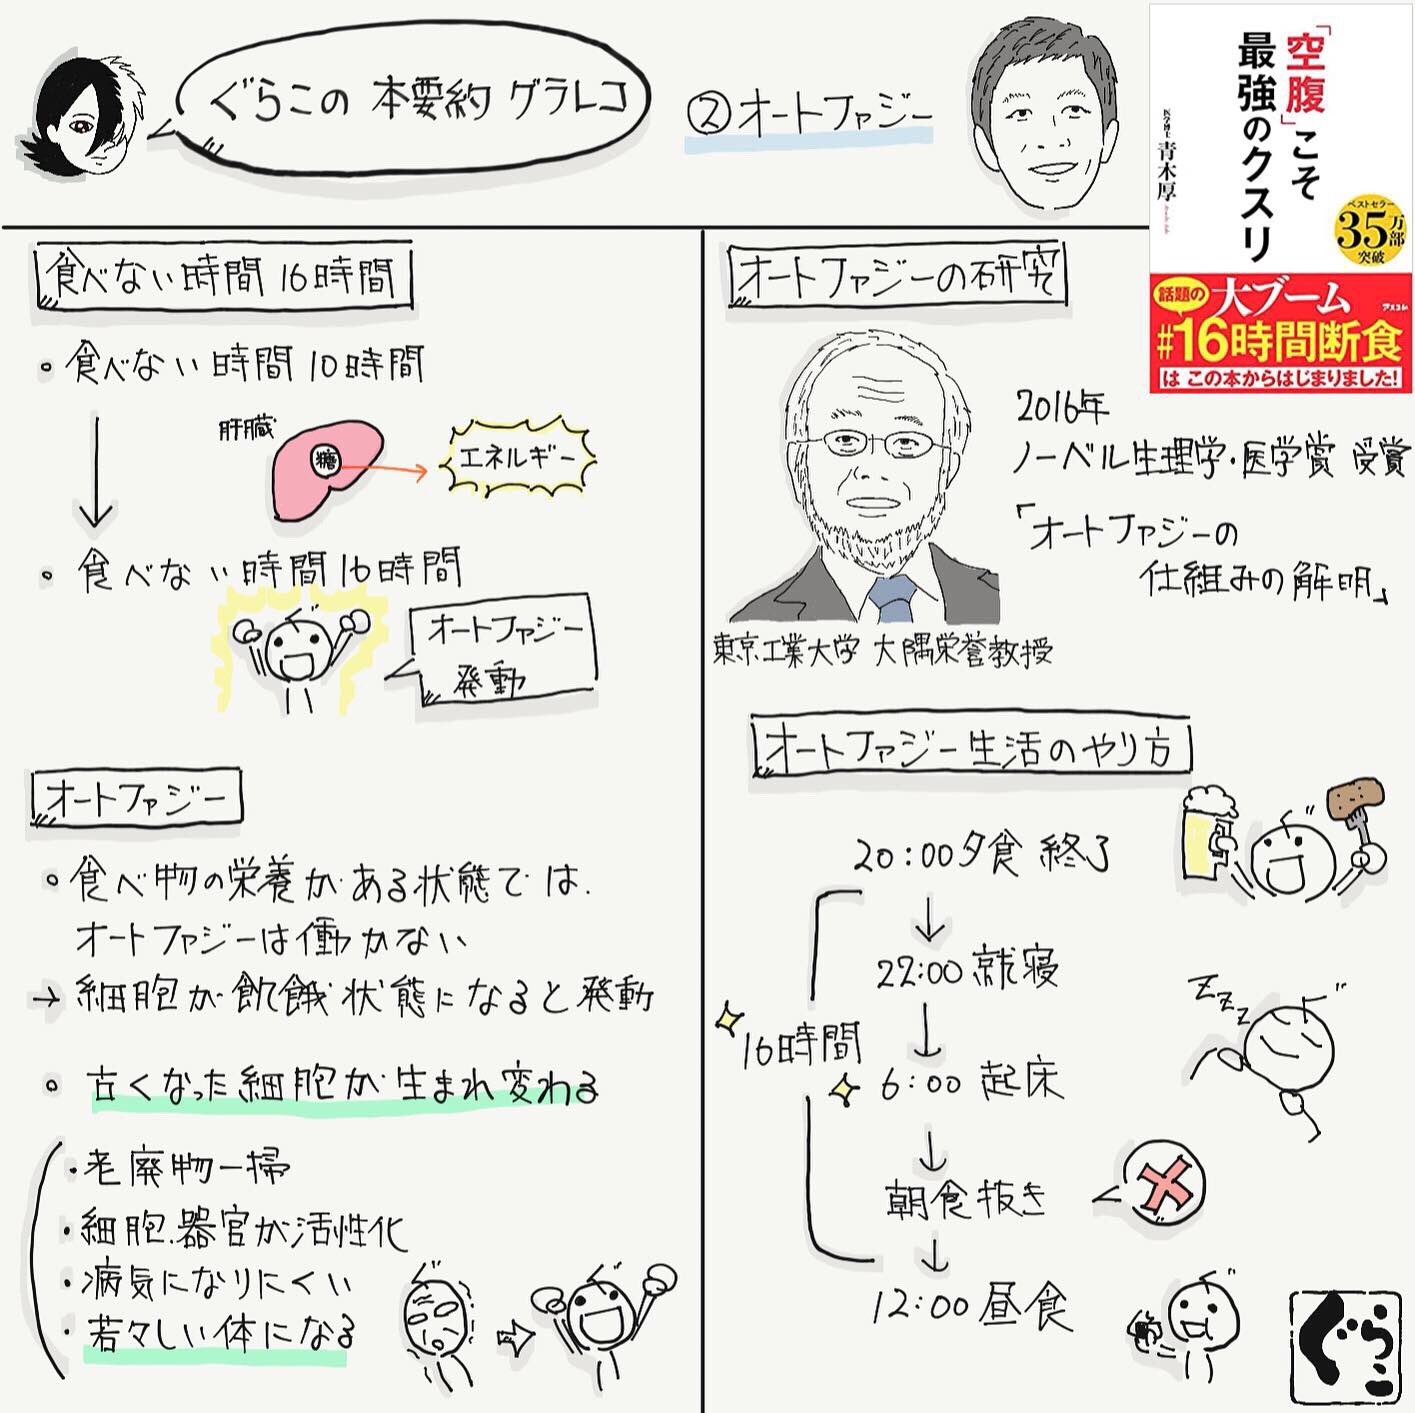 ぐらこの 本要約 グラレコ
②オートファジー
「空腹」こそ
最強のクスリ
医学博士 青木厚
ベストセラー
35万部
突破
話題の
大ブーム
アスコム
#16時間断食
は この本からはじまりました!
食べない時間 16時間
食べない時間 10時間
肝臓
糖
エネルギー
食べない時間16時間
オートファジー
発動
オートファジー
食べ物の栄養がある状態では
オートファジーは働かない
→ 細胞が飢餓状態になると発動
古くなった細胞が生まれ変わる
・老廃物一掃
・細胞.器官が活性化
・病気になりにくい
・若々しい体になる
オートファジーの研究
2016年
ノーベル生理学・医学賞 受賞
「オートファジーの
仕組みの解明」
東京工業大学 大隅栄誉教授
オートファジー生活のやり方
20:00夕食 終了
22:00 就寝
ZZZ
16時間
6:00 起床
朝食抜き
12:00 昼食
ぐらこ